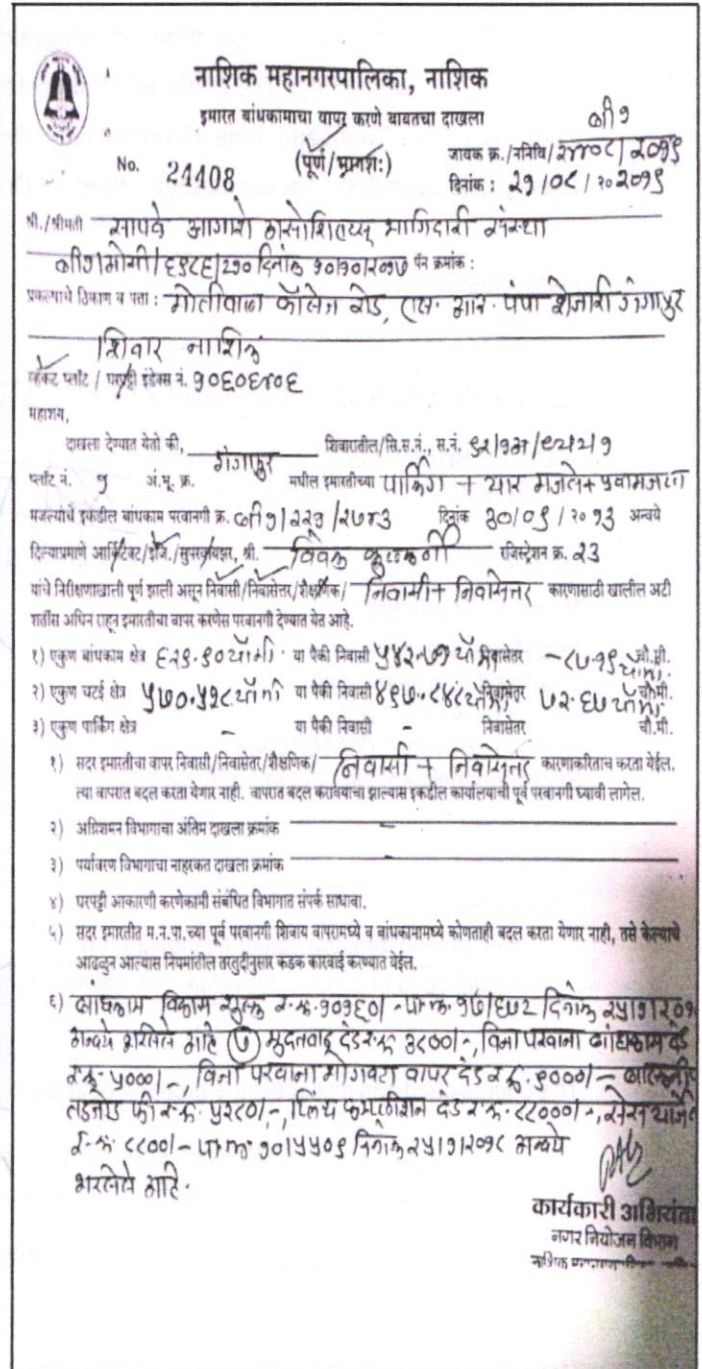 नाशिक महानगरपालिका, नाशिक
इमारत बांधकामाचा वापर करणे बाबतचा दाखला
सी१
No. 24408 (पूर्ण/भागशः) जावक क्र./ननिवि/२४४०८/२०१९
दिनांक : २१/०८/२०२०१९
श्री./श्रीमती असोशिएटस् भागिदारी संस्था
दिनांक १०/१०/२०१७ पॅन क्रमांक :
प्रकल्पाचे ठिकाण व पत्ता : मोतीवाला कॉलेज रोड, एस. आर. पंपा शेजारी गंगापुर
शिवार नाशिक
व्हॅकेट प्लॉट / घरपट्टी इंडेक्स नं. १०६०६४०६
महाशय,
दाखला देण्यात येतो की, गंगापुर शिवारातील/सि.स.नं., स.नं.
प्लॉट नं. १ अं.भू. क्र. मधील इमारतीच्या पार्किंग + चार मजले+
मजल्याचे इकडील बांधकाम परवानगी क्र. सी१/२२१/२७४३ दिनांक ३०/०९/२०१३ अन्वये
दिल्याप्रमाणे आर्किटेक्ट/इंजि./सुपरव्हायझर, श्री. विवेक कुलकर्णी रजिस्ट्रेशन क्र. 23
यांचे निरीक्षणाखाली पूर्ण झाली असून निवासी/निवासेत्तर/शैक्षणिक/ निवासी+ निवासेत्तर कारणासाठी खालील अटी
शर्तीस अधिन राहून इमारतीचा वापर करणेस परवानगी देण्यात येत आहे.
१) एकुण बांधकाम क्षेत्र ६२९.९० चौमी. या पैकी निवासी ५४२.७१ चौमी निवासेतर ८७.१९ चौ.मी.
२) एकुण चटई क्षेत्र ५७०.५२ चौमी या पैकी निवासी निवासेत्तर चौ.मी.
३) एकुण पार्किंग क्षेत्र - या पैकी निवासी - निवासेत्तर चौ.मी.
१) सदर इमारतीचा वापर निवासी/निवासेत्तर/शैक्षणिक/ निवासी + निवासेत्तर कारणाकरिताच करता येईल.
त्या वापरात बदल करता येणार नाही. वापरात बदल करावयाचा झाल्यास इकडील कार्यालयाची पूर्व परवानगी घ्यावी लागेल.
२) अग्निशमन विभागाचा अंतिम दाखला क्रमांक -
३) पर्यावरण विभागाचा नाहरकत दाखला क्रमांक -
४) घरपट्टी आकारणी करणेकामी संबंधित विभागात संपर्क साधावा.
५) सदर इमारतीत म.न.पा.च्या पूर्व परवानगी शिवाय वापरामध्ये व बांधकामामध्ये कोणताही बदल करता येणार नाही, तसे केल्याचे
आढळुन आल्यास नियमांतील तरतुदीनुसार कडक कारवाई करण्यात येईल.
६) बांधकाम विकास शुल्क र.रू.१०१६०/- पा.क्र.१७/६७२ दिनांक
अन्वये भरलेले आहे (७) मुदतवाढ दंड र.रू ३८००/-, विना परवाना बांधकाम दंड
र.रू ५०००/-, विना परवाना भोगवटा वापर दंड र.रू. ९०००/-
तडजोड फी र.रू. ५२८०/-, दंड र.रू. ८८०००/-,
र.रू. ८८००/- दिनांक अन्वये
भरलेले आहे.
कार्यकारी अभियंता
नगर नियोजन विभाग